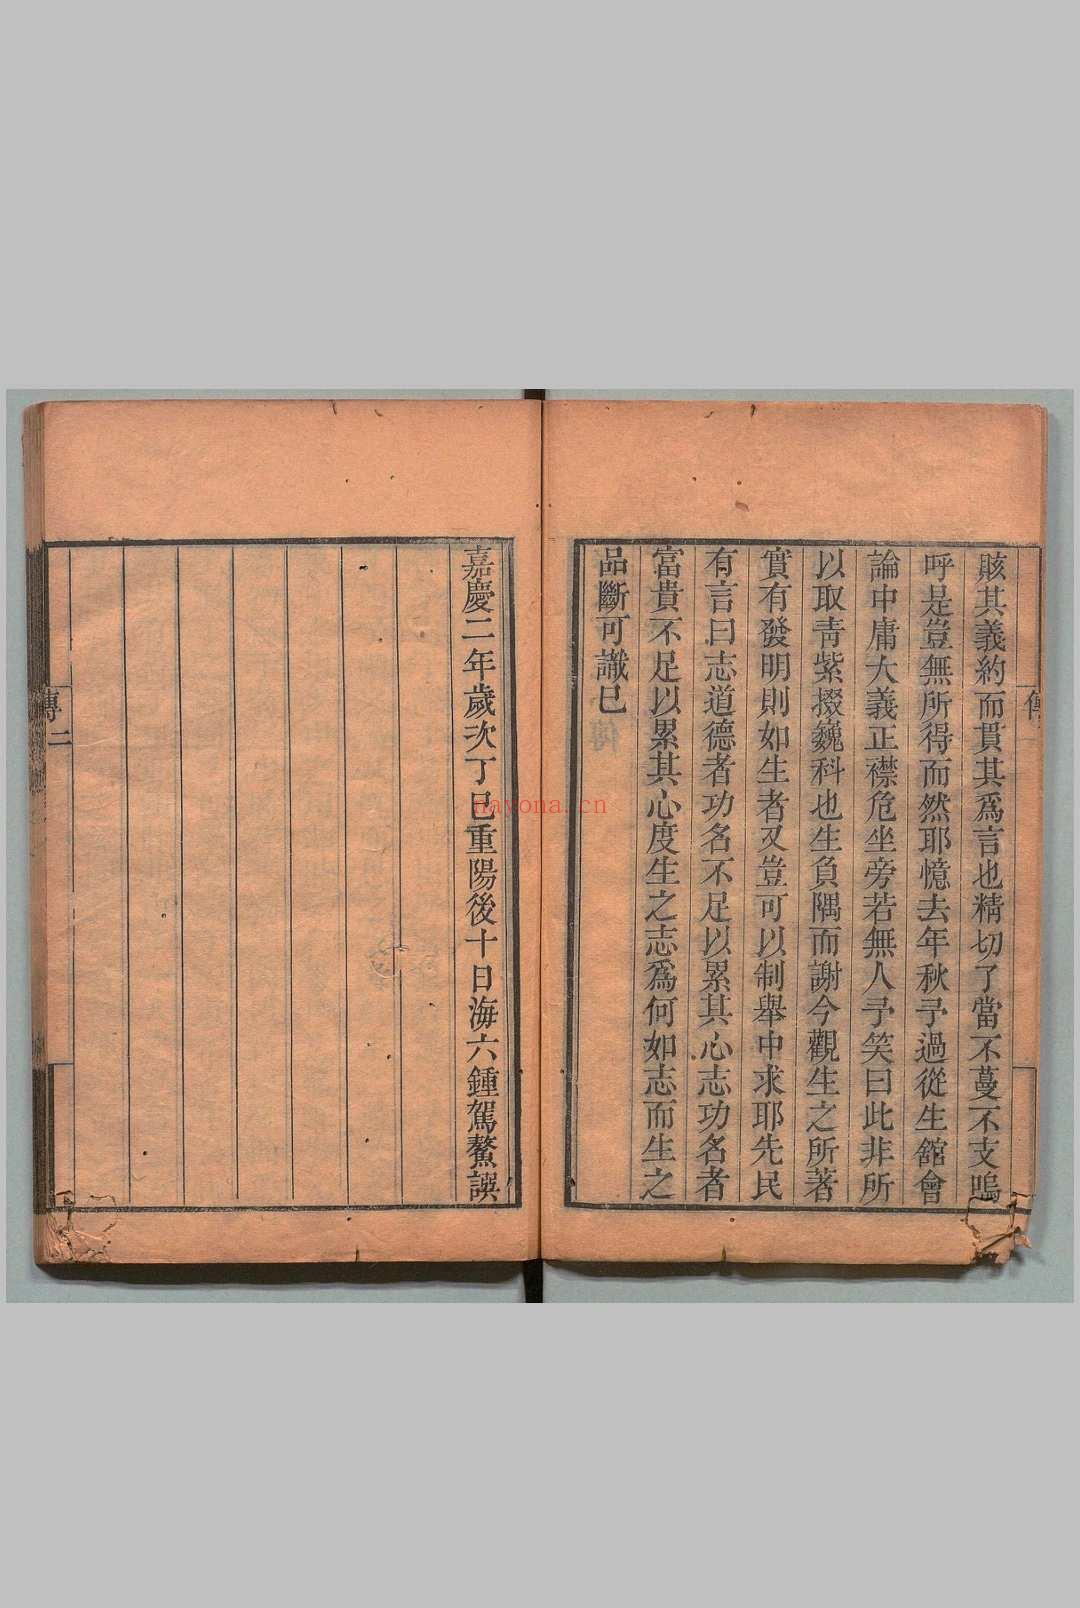 賅其義約而貫其爲言也精切了當不蔓不支嗚
呼是豈無所得而然耶憶去年秋予過從生舘會
論中庸大義正襟危坐旁若無人予笑曰此非所
以取青紫掇巍科也生負隅而謝今觀生之所著
實有發明則如生者又豈可以制舉中求耶先民
有言曰志道德者功名不足以累其心志功名者
富貴不足以累其心度生之志爲何如志而生之
品斷可識已
嘉慶二年歲次丁巳重陽後十日海六鍾駕鰲譔
傳二
nayona.cn